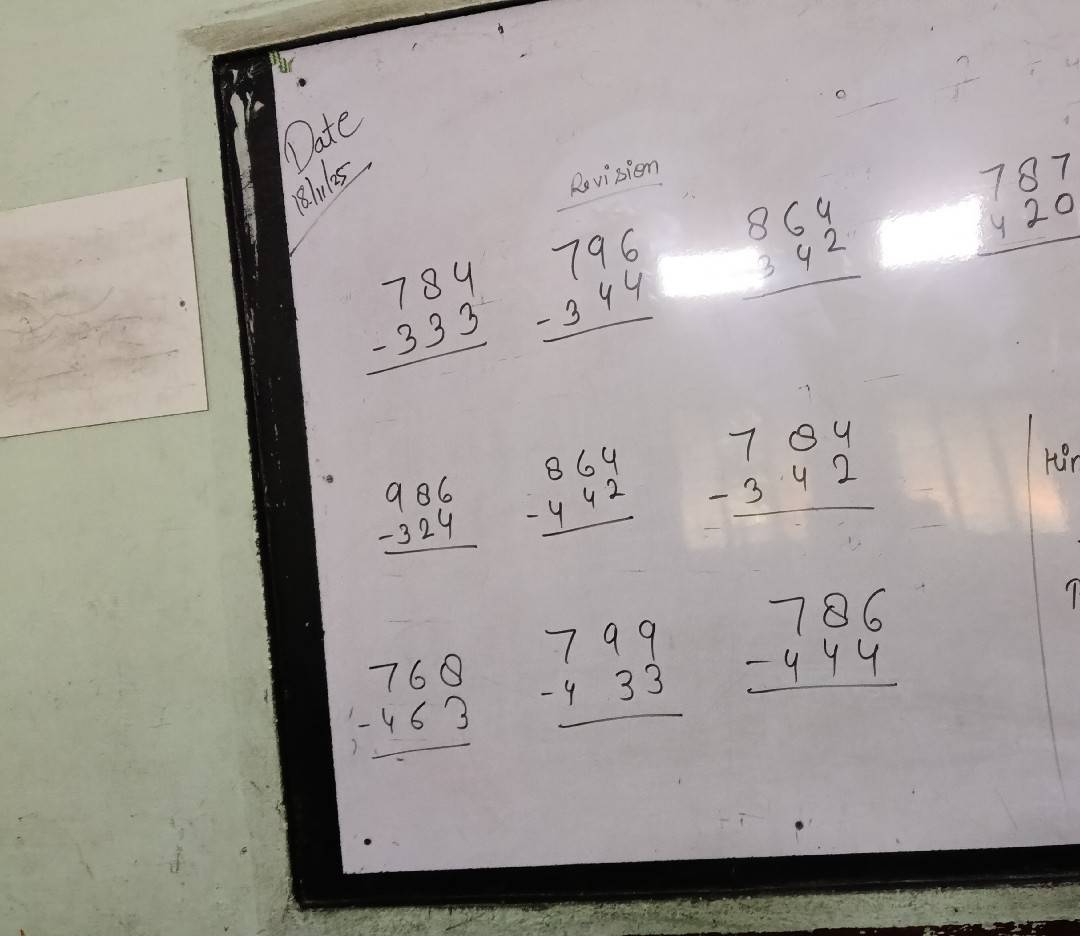 Date
18/11/25
Revision
784
-333
796
-344
864
342
787
420
986
-324
864
-442
784
-342
768
-463
799
-433
786
-444